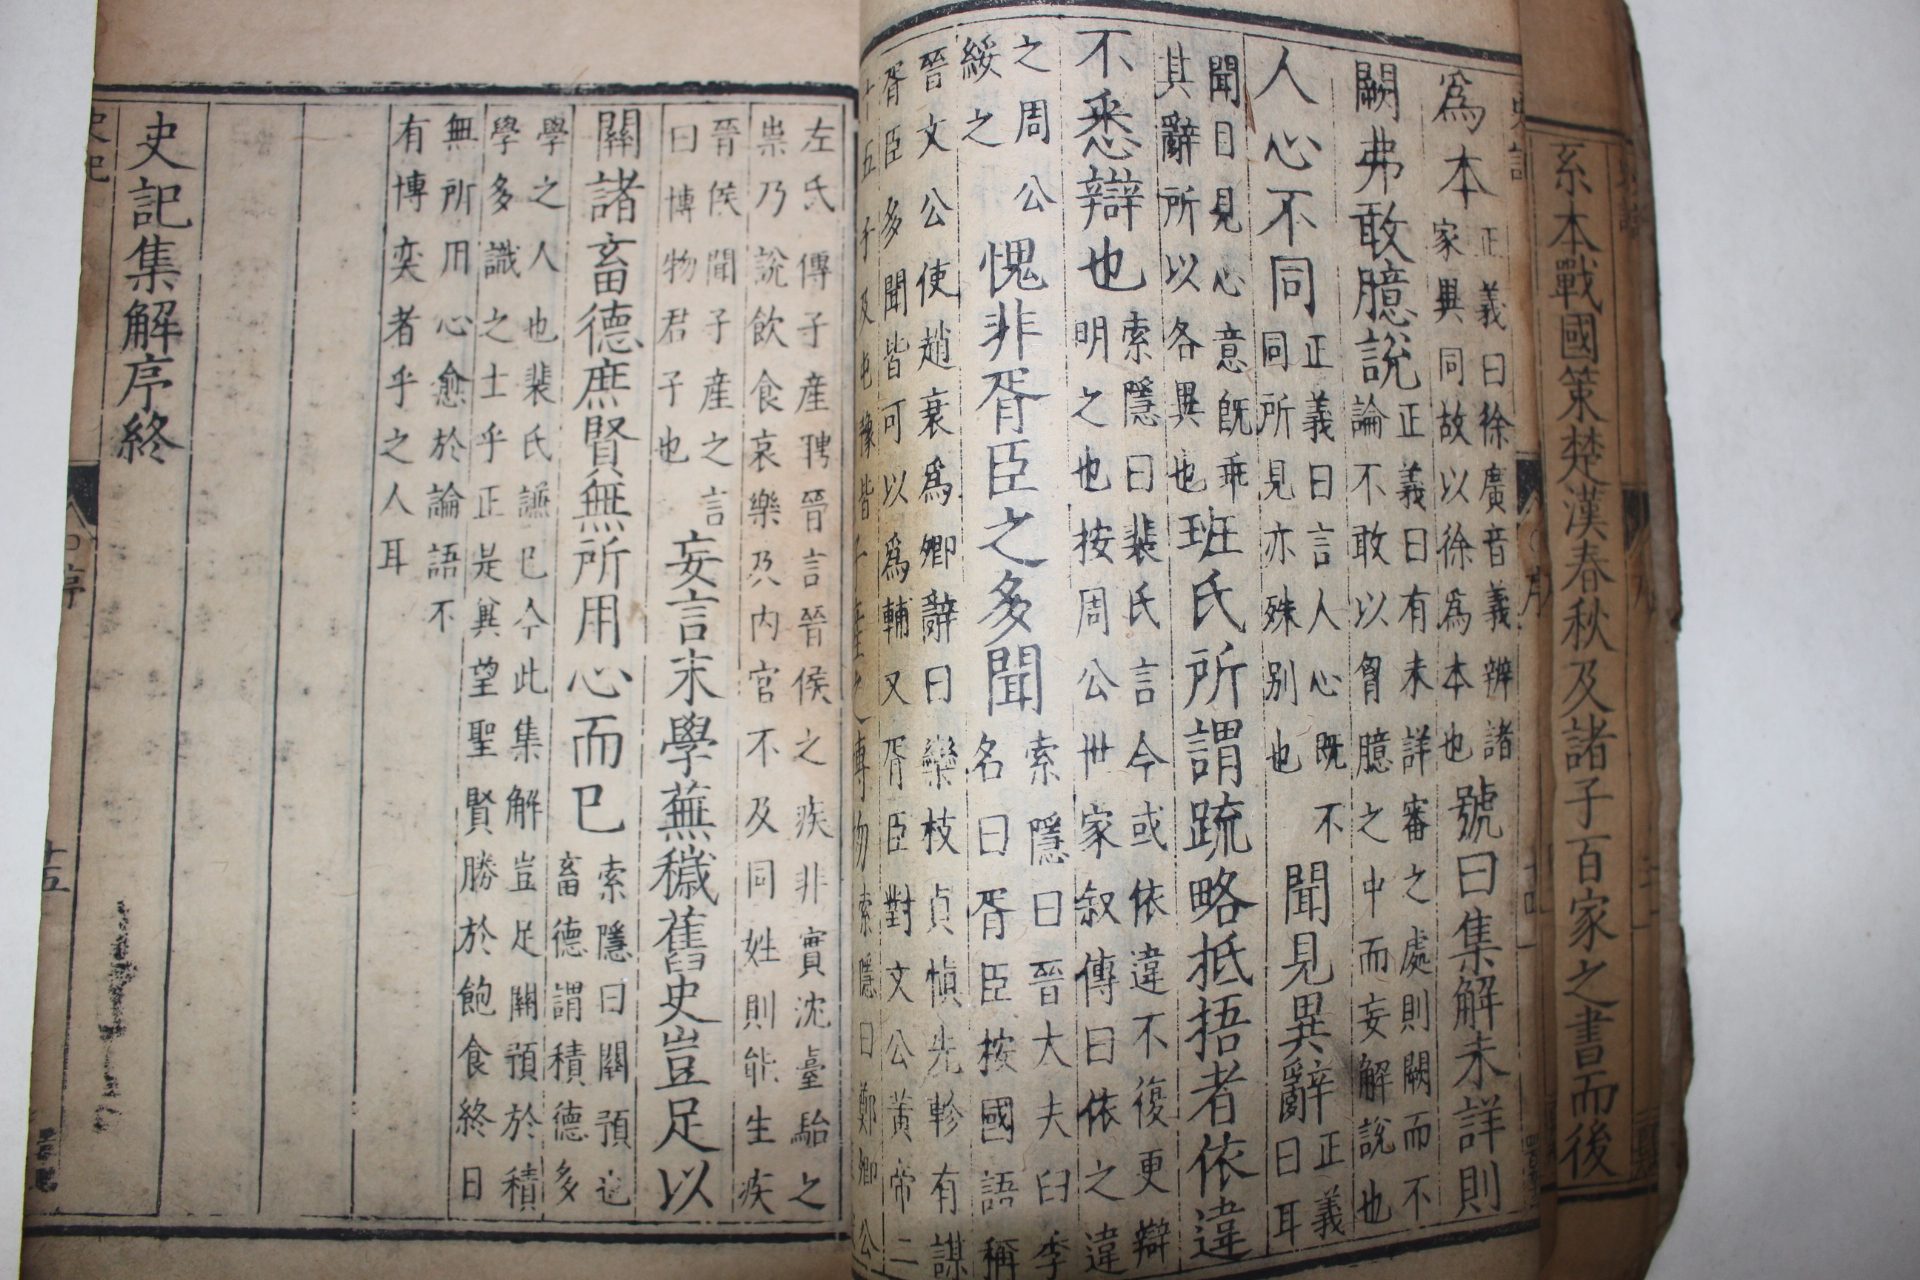 系本戰國策楚漢春秋及諸子百家之書而後
為本
正義曰徐廣音義辨諸
家異同故以徐為本也
號曰集解未詳則
闕弗敢臆說
正義曰有未詳審之處則闕而不
論不敢以胷臆之中而妄解說也
人心不同
正義曰言人心既不
同所見亦殊别也
聞見異辭
正義
曰耳
聞目見心意既乖
其辭所以各異也
班氏所謂疏略抵捂者依違
不悉辯也
索隱曰裴氏言今或依違不復更辯
明之也按周公世家叙傳曰依之違
之周公
綏之
愧非胥臣之多聞
索隱曰晉大夫臼季
名曰胥臣按國語稱
晉文公使趙衰為卿辭曰欒枝貞愼先軫有謀
胥臣多聞皆可以為輔又胥臣對文公黃帝二
十五子及屯豫皆
子產之博物
索隱曰鄭卿公
左氏傳子產聘晉言晉侯之疾非實沈臺駘之
祟乃說飲食哀樂及內官不及同姓則能生疾
晉侯聞子產之言
曰博物君子也
妄言末學蕪穢舊史豈足以
關諸畜德庶賢無所用心而已
索隱曰關預也
畜德謂積德多
學之人也裴氏謙巳今此集解豈足關預於積
學多識之士乎正是冀望聖賢勝於飽食終日
無所用心愈於論語不
有博奕者乎之人耳
史記集解序終
史記
序
十五